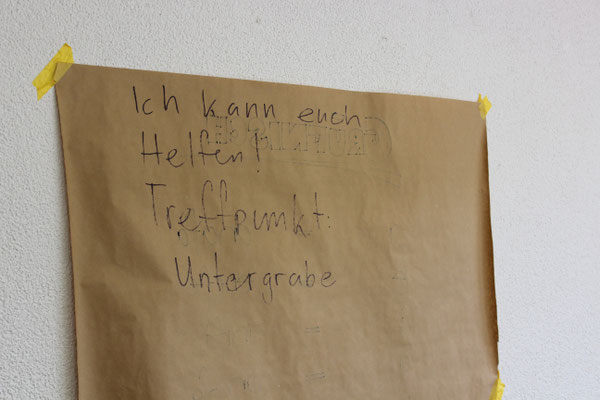 Ich kann euch
Helfen!
Treffpunkt:
Untergrabe